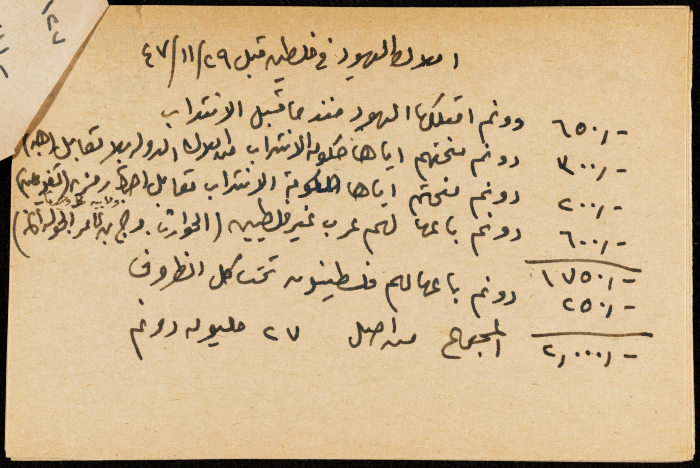 املاك اليهود في فلسطين قبل ٢٩/١١/٤٧
٦٥٠,- دونم امتلكها اليهود منذ ما قبل الانتداب
٣٠٠,- دونم منحتهم اياها حكومة الانتداب من املاك الدولة بلا مقابل (هبة)
٢٠٠,- دونم منحتهم اياها حكومة الانتداب مقابل اجرة رمزية
٦٠٠,- دونم باعها لهم عرب غير فلسطينيين (الحوارث، مرج بن عامر، الحولة
١٧٥٠,-
٢٥٠,- دونم باعها لهم فلسطينيون تحت كل الظروف
٢,٠٠٠,- المجموع من اصل ٢٧ مليون دونم
١٢٧